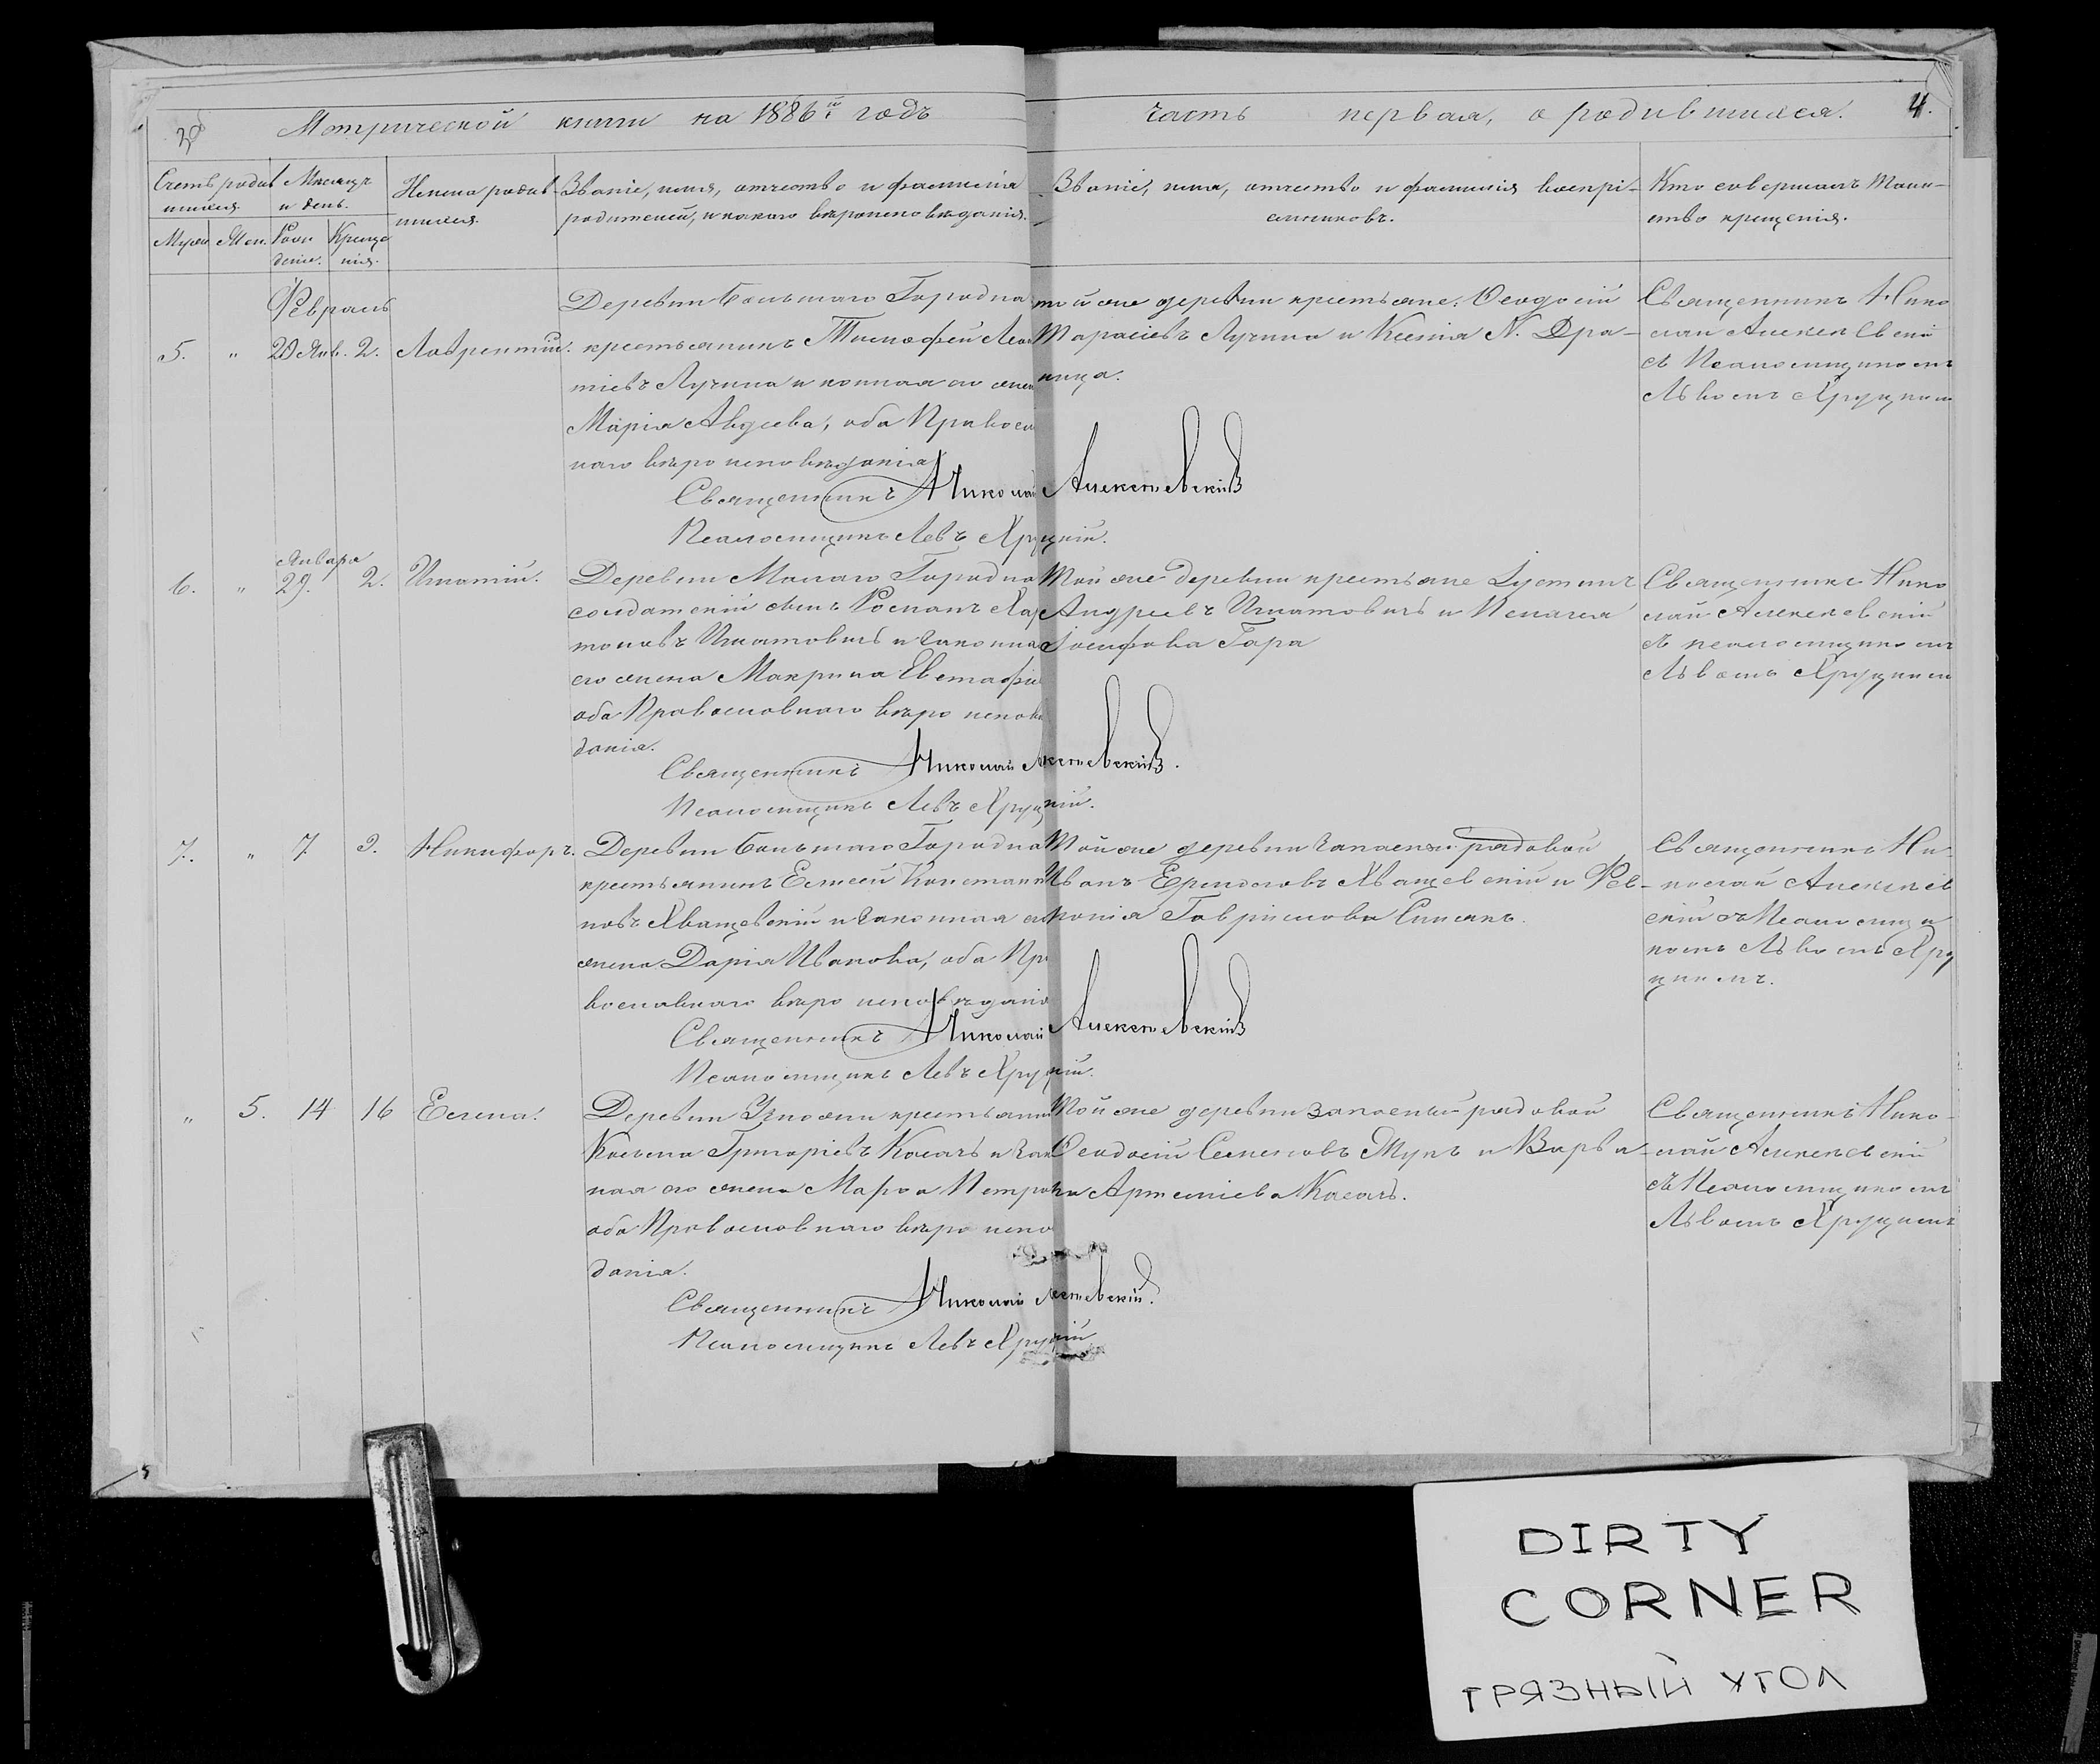 Метрической книги на 1886й годъ
часть первая, о родившихся.
4.
Счетъ родив-
шихся.
Мѣсяцъ
и день.
Муж.
Жен.
Рож
денія.
Креще
нія.
Имена родив-
шихся.
Званіе, имя, отчество и фамилія
родителей, и какого вѣроисповѣданія.
Званіе, имя, отчество и фамилія воспрі-
емниковъ.
Кто совершалъ таин-
ство крещенія.
Февраль
5. " Янв. 2. Лаврентій.
Деревни Большаго Городна
крестьянинъ Тимофей Леон
тіевъ Лучина и конная его жен
Марія Авдеева, оба Правосл
наго вѣроисповѣданія
Священникъ Николай Алексѣевскій
Псаломщикъ Левъ Хруцкій.
той же деревни крестьяне: Ѳеодосій
Тарасіевъ Лучина и Ксенія N. Дра-
ница.
Священникъ Нико
лай Алексѣевскій
съ Псаломщикомъ
Львомъ Хруцким
Января
6. " 29. 2. Игнатій.
Деревни Малаго Городна
солдатскій сынъ Романъ Хар
тоновъ Игнатовичъ и законна
его жена Макрина Евстафі
оба Православнаго вѣроиспов
данія.
Священникъ Николай Алексѣевскій.
Псаломщикъ Левъ Хруцкій.
Той же деревни крестьяне Іустинъ
Андреевъ Игнатовичъ и Пелагея
Іосифова Гора
Священникъ Нико
лай Алексѣевскій
съ псаломщикомъ
Львомъ Хруцким
7. " 7 9. Никифоръ.
Деревни Большаго Городна
крестьянинъ Елисей Константи
новъ Хващевскій и законная его
жена Дарія Иванова, оба Пра
вославнаго вѣроисповѣданія
Священникъ Николай Алексѣевскій
Псаломщикъ Левъ Хруцкій.
Той же деревни запасный рядовой
Иванъ Хващевскій и Фев-
ронія Гавріилова
Священникъ Ни-
колай Алексѣев
скій съ Псаломщи
комъ Львомъ Хру
цкимъ.
" 5. 14 16 Елена.
Деревни крестьянин
Косьма Григоріевъ Косачъ и зак
ная его жена Марѳа Петро
оба Православнаго вѣроиспо
данія.
Священникъ Николай Алексѣевскій.
Псаломщикъ Левъ Хруцкій
Той же деревни запасный рядовой
Ѳеодосій Семеновъ Жукъ и Варва-
ра Артеміева Косачъ.
Священникъ Нико-
лай Алексѣевскій
съ Псаломщикомъ
Львомъ Хруцкимъ
DIRTY
CORNER
ГРЯЗНЫЙ УГОЛ